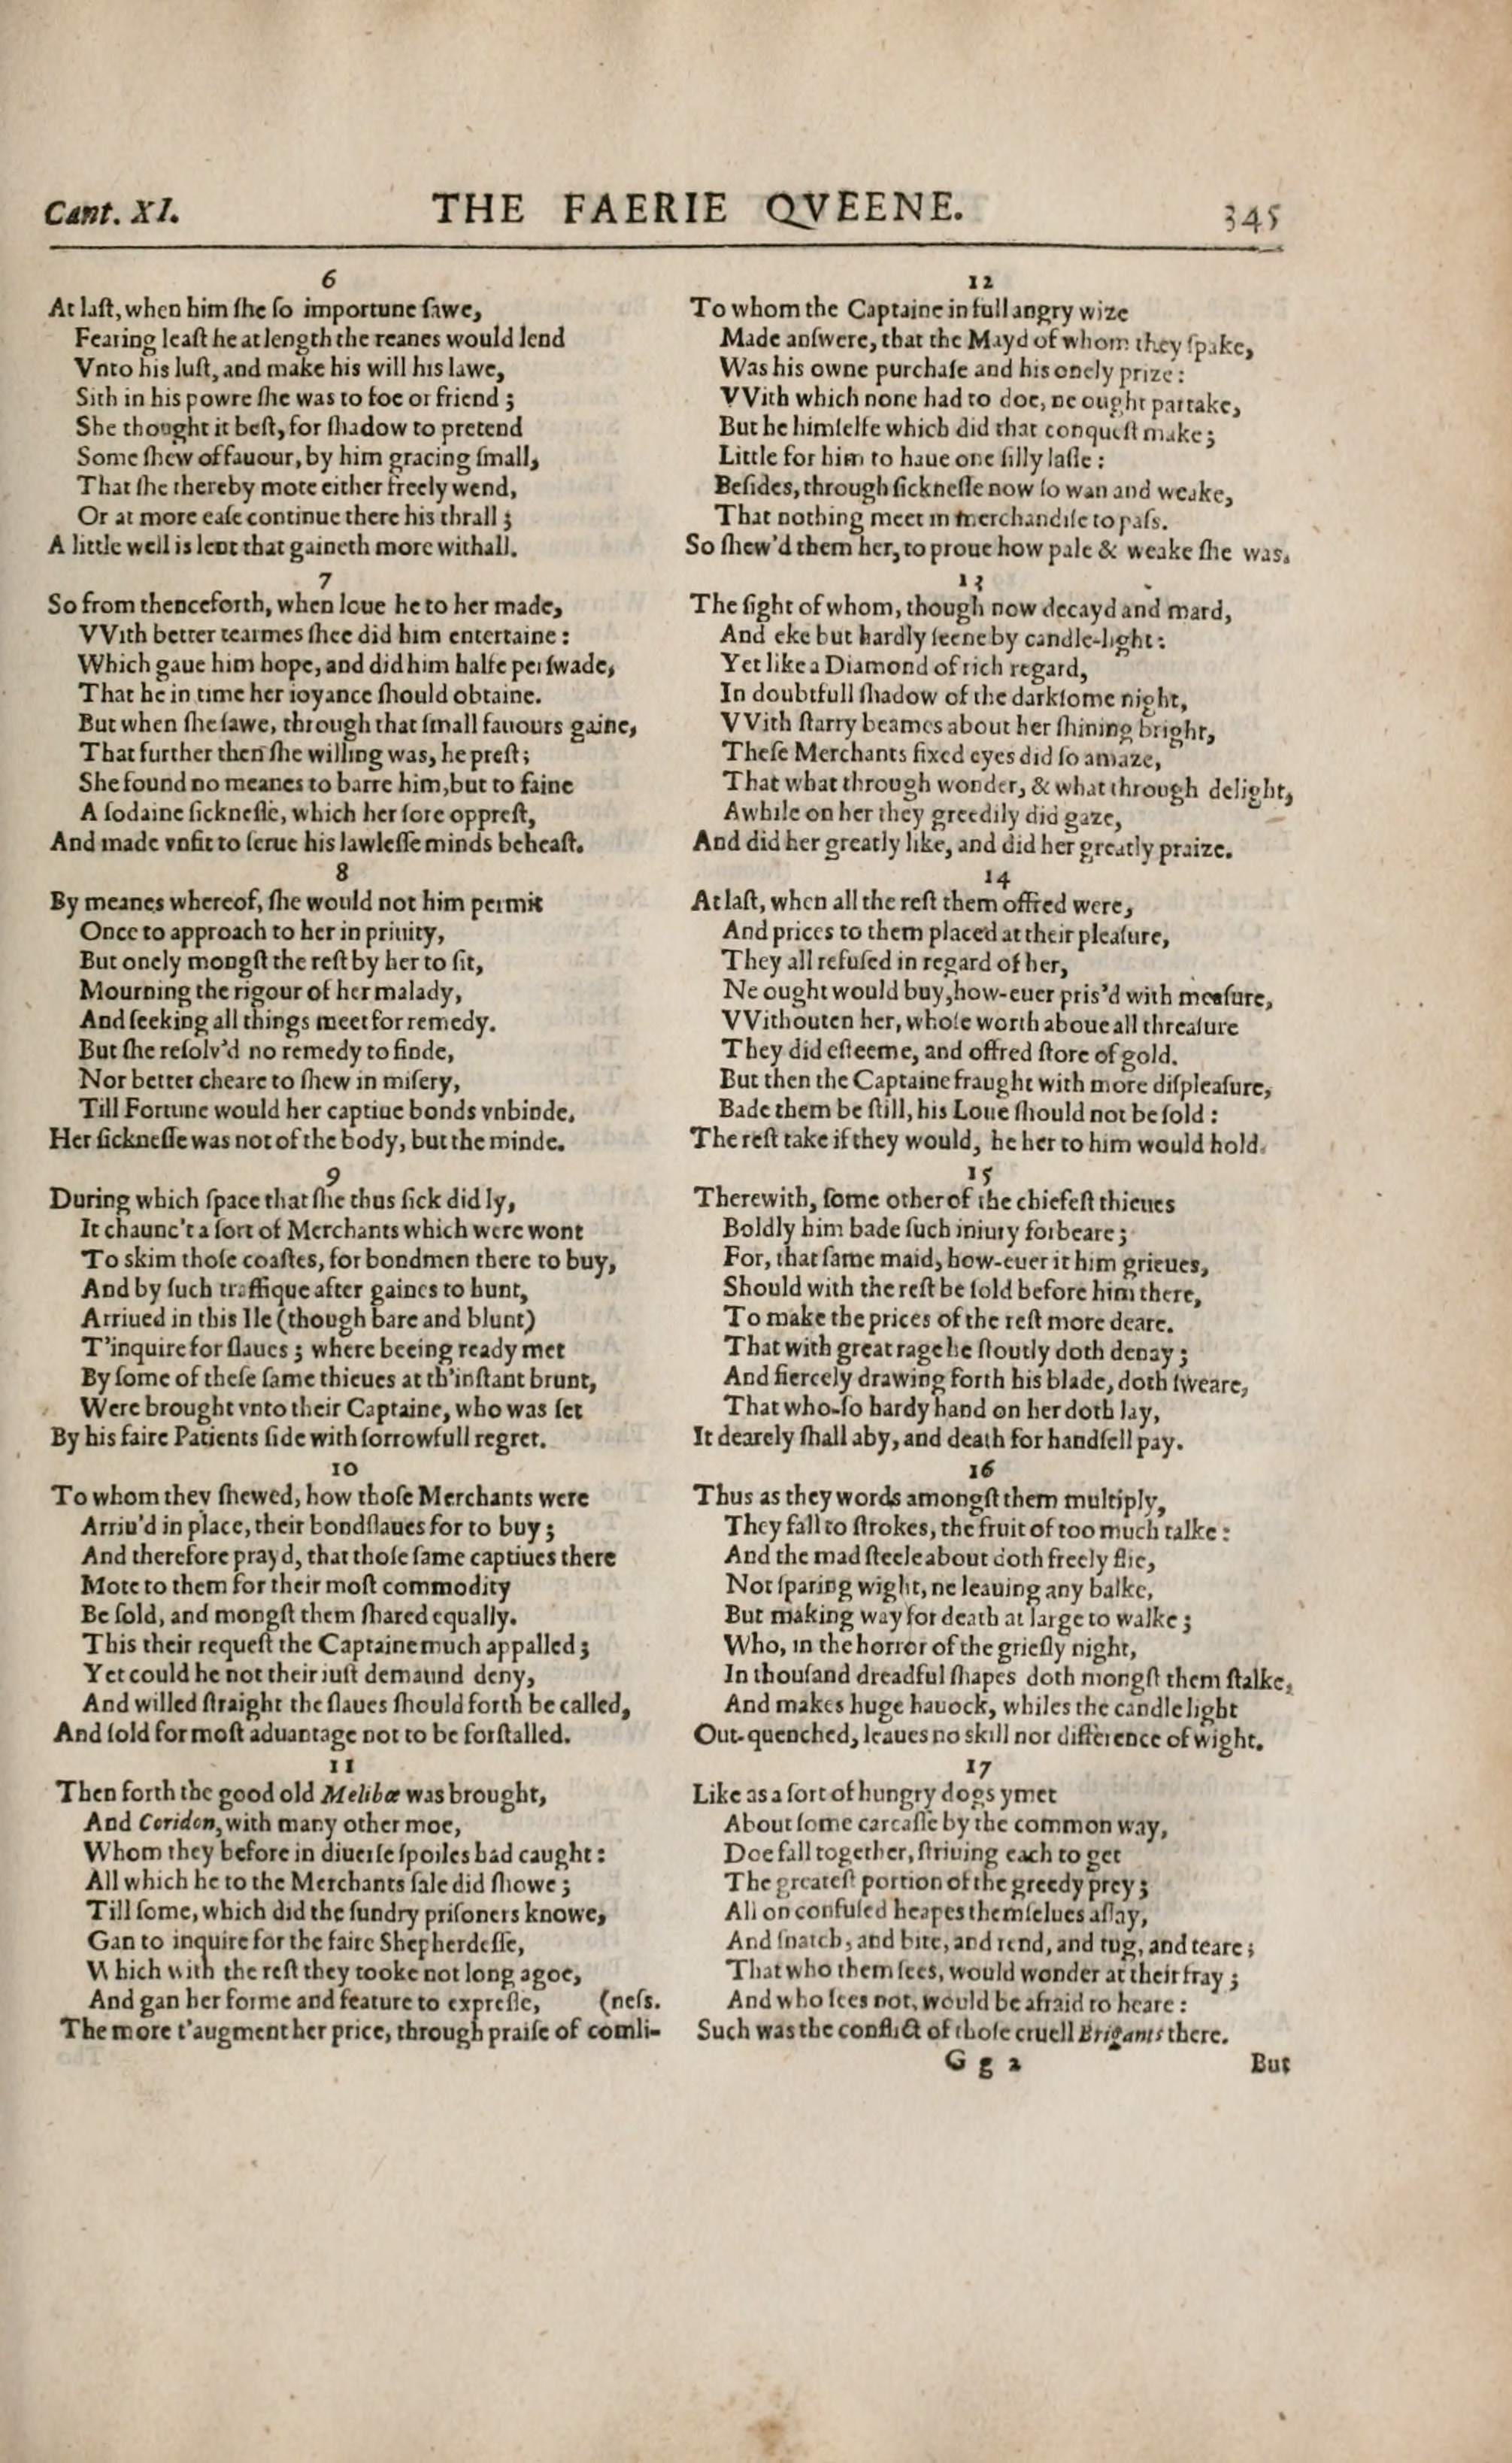 Cant. XI.
THE FAERIE QVEENE.
345
6
At laſt, when him ſhe ſo importune ſawe,
Fearing leaſt he at length the reanes would lend
Vnto his luſt, and make his will his lawe,
Sith in his powre ſhe was to foe or friend ;
She thought it beſt, for ſhadow to pretend
Some ſhew of fauour, by him gracing ſmall,
That ſhe thereby mote either freely wend,
Or at more eaſe continue there his thrall ;
A little well is lent that gaineth more withall.
7
So from thenceforth, when loue he to her made,
VVith better tearmes ſhee did him entertaine :
Which gaue him hope, and did him halfe perſwade,
That he in time her ioyance ſhould obtaine.
But when ſhe ſawe, through that ſmall fauours gaine,
That further then ſhe willing was, he preſt ;
She found no meanes to barre him, but to faine
A ſodaine ſickneſſe, which her ſore oppreſt,
And made vnfit to ſerue his lawleſſe minds beheaſt.
8
By meanes whereof, ſhe would not him permit
Once to approach to her in priuity,
But onely mongſt the reſt by her to ſit,
Mourning the rigour of her malady,
And ſeeking all things meet for remedy.
But ſhe reſolv'd no remedy to finde,
Nor better cheare to ſhew in miſery,
Till Fortune would her captiue bonds vnbinde,
Her ſickneſſe was not of the body, but the minde.
9
During which ſpace that ſhe thus ſick did ly,
It chaunc't a ſort of Merchants which were wont
To skim thoſe coaſtes, for bondmen there to buy,
And by ſuch traffique after gaines to hunt,
Arriued in this Ile (though bare and blunt)
T'inquire for ſlaues ; where beeing ready met
By ſome of theſe ſame thieues at th'inſtant brunt,
Were brought vnto their Captaine, who was ſet
By his faire Patients ſide with ſorrowfull regret.
10
To whom they ſhewed, how thoſe Merchants were
Arriu'd in place, their bondſlaues for to buy ;
And therefore prayd, that thoſe ſame captiues there
Mote to them for their moſt commodity
Be ſold, and mongſt them ſhared equally.
This their requeſt the Captaine much appalled ;
Yet could he not their iuſt demaund deny,
And willed ſtraight the ſlaues ſhould forth be called,
And ſold for moſt aduantage not to be forſtalled.
11
Then forth the good old Melibœ was brought,
And Coridon, with many other moe,
Whom they before in diuerſe ſpoiles had caught :
All which he to the Merchants ſale did ſhowe ;
Till ſome, which did the ſundry priſoners knowe,
Gan to inquire for the faire Shepherdeſſe,
Which with the reſt they tooke not long agoe,
And gan her forme and feature to expreſſe, (neſs.
The more t'augment her price, through praiſe of comli-
12
To whom the Captaine in full angry wize
Made anſwere, that the Mayd of whom they ſpake,
Was his owne purchaſe and his onely prize :
VVith which none had to doe, ne ought partake,
But he himſelfe which did that conqueſt make ;
Little for him to haue one ſilly laſſe :
Beſides, through ſickneſſe now ſo wan and weake,
That nothing meet in merchandiſe to paſs.
So ſhew'd them her, to proue how pale & weake ſhe was.
13
The ſight of whom, though now decayd and mard,
And eke but hardly ſeene by candle-light :
Yet like a Diamond of rich regard,
In doubtfull ſhadow of the darkſome night,
VVith ſtarry beames about her ſhining bright,
Theſe Merchants fixed eyes did ſo amaze,
That what through wonder, & what through delight,
Awhile on her they greedily did gaze,
And did her greatly like, and did her greatly praize.
14
At laſt, when all the reſt them offred were,
And prices to them placed at their pleaſure,
They all refuſed in regard of her,
Ne ought would buy, how-euer pris'd with meaſure,
VVithouten her, whoſe worth aboue all threaſure
They did eſteeme, and offred ſtore of gold.
But then the Captaine fraught with more diſpleaſure,
Bade them be ſtill, his Loue ſhould not be ſold :
The reſt take if they would, he her to him would hold.
15
Therewith, ſome other of the chiefeſt thieues
Boldly him bade ſuch iniury forbeare ;
For, that ſame maid, how-euer it him grieues,
Should with the reſt be ſold before him there,
To make the prices of the reſt more deare.
That with great rage he ſtoutly doth denay ;
And fiercely drawing forth his blade, doth ſweare,
That who-ſo hardy hand on her doth lay,
It dearely ſhall aby, and death for handſell pay.
16
Thus as they words amongſt them multiply,
They fall to ſtrokes, the fruit of too much talke :
And the mad ſteele about doth freely flie,
Not ſparing wight, ne leauing any balke,
But making way for death at large to walke ;
Who, in the horror of the grieſly night,
In thouſand dreadful ſhapes doth mongſt them ſtalke,
And makes huge hauock, whiles the candle light
Out-quenched, leaues no skill nor difference of wight.
17
Like as a ſort of hungry dogs ymet
About ſome carcaſſe by the common way,
Doe fall together, ſtriuing each to get
The greateſt portion of the greedy prey ;
All on confuſed heapes themſelues aſſay,
And ſnatch, and bite, and rend, and tug, and teare ;
That who them ſees, would wonder at their fray ;
And who ſees not, would be afraid to heare :
Such was the conflict of thoſe cruell Brigants there.
G g 2
But